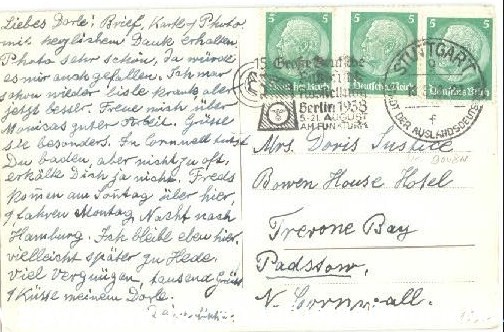 Liebes Dorle! Brief, Karte & Photo
mit herzlichem Dank erhalten.
Photo sehr schön, Du würdest
es mir auch gefallen. Ich war
schon wieder bisle krank, aber
jetzt besser. Freue mich über
Monicas guter Arbeit. Grüsse
sie besonders. In Cornwall tust
Du baden, aber nicht zu oft,
erkälte Dich ja nicht. Freds
kommen am Sonntag über hier,
& fahren Montag Nacht nach
Hamburg. Ich bleibe eben hier,
vielleicht später zu Hede.
Viel Vergnügen, tausend Grüsse
& Küsse meinem Dorle.
5 5 5
Deutsches Reich Deutsches Reich Deutsches Reich
15. Große Deutsche
Rundfunk
Ausstellung
Berlin 1938
5.-21. AUGUST
AM FUNKTURM
STUTTGART
STADT DER AUSLANDSDEUTSCHEN
f
Mrs. Doris Justice
Bowen House Hotel
Trevone Bay
Padstow,
N. Cornwall.